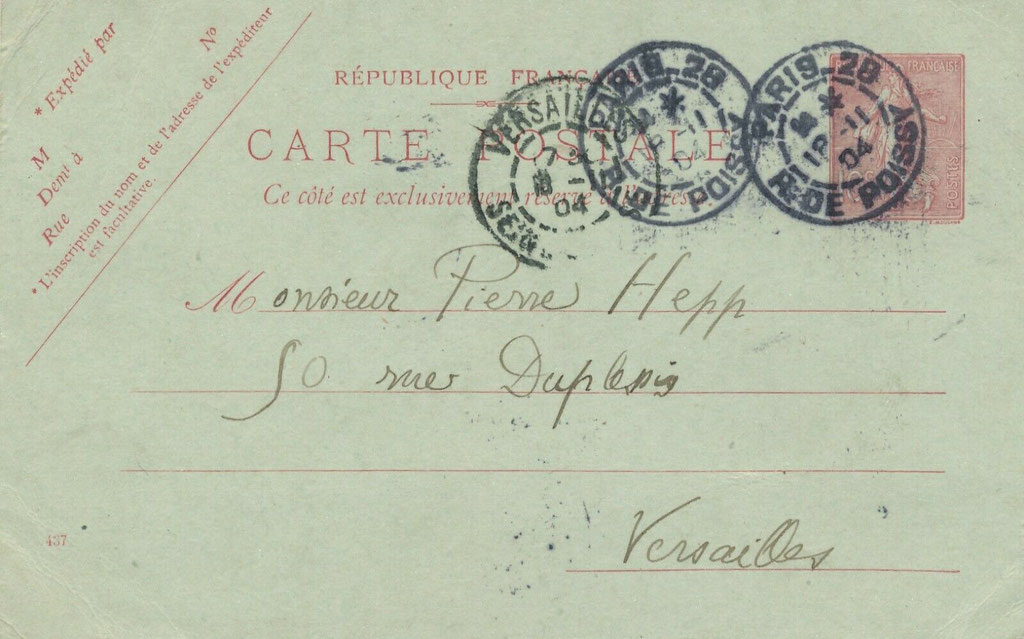 * Expédié par
M
N°
Demt à
Rue
* L'inscription du nom et de l'adresse de l'expéditeur
est facultative.
RÉPUBLIQUE FRANÇAISE
CARTE POSTALE
Ce côté est exclusivement réservé à l'adresse
VERSAILLES
04
PARIS 28
*
18 -11
04
R. DE POISSY
PARIS 28
*
18 -11
04
R. DE POISSY
FRANÇAISE
POSTES
Monsieur Pierre Hepp
50 rue Duplessis
Versailles
437